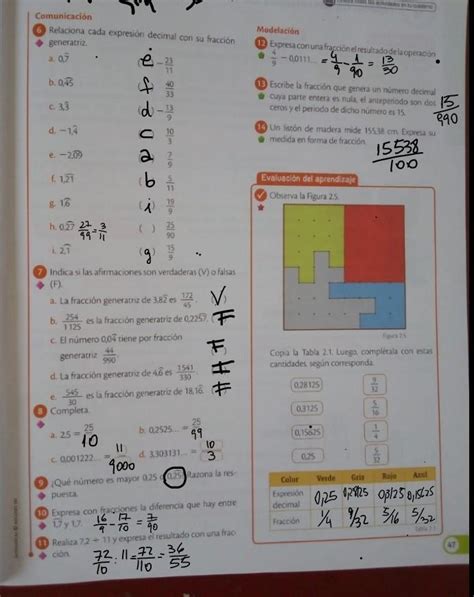 Comunicación
6 Relaciona cada expresión decimal con su fracción
generatriz.
a. 0,7 e - 23/11
b. 0,45 f 40/33
c. 3,3 d - 13/9
d. -1,4 c 10/3
e. -2,09 a 7/9
f. 1,21 ( b 5/11
g. 1,6 ( i ) 19/9
h. 0,27 27/99 = 3/11 ( ) 25/90
i. 2,1 ( g ) 15/9
7 Indica si las afirmaciones son verdaderas (V) o falsas
(F).
a. La fracción generatriz de 3,82 es 172/45. V )
b. 254/1125 es la fracción generatriz de 0,2257. ( F
c. El número 0,04 tiene por fracción
generatriz 44/990. F )
d. La fracción generatriz de 4,6 es 1541/330. F
e. 545/30 es la fracción generatriz de 18,16. F
8 Completa.
a. 2,5 = 25/10 b. 0,2525... = 25/99
c. 0,001222... = 11/9000 d. 3,303131... = 10/3
9 ¿Qué número es mayor 0,25 o 0,25? Razona la res-
puesta.
10 Expresa con fracciones la diferencia que hay entre
1,7 y 1,7. 16/9 - 17/10 = 7/90
11 Realiza 7,2 ÷ 11 y expresa el resultado con una frac-
ción. 72/10 : 11 = 72/110 = 36/55
Modelación
12 Expresa con una fracción el resultado de la operación
4/9 - 0,0111... = 4/9 - 1/90 = 13/30
13 Escribe la fracción que genera un número decimal
cuya parte entera es nula, el anteperiodo son dos
ceros y el periodo de dicho número es 15. 15/990
14 Un listón de madera mide 155,38 cm. Expresa su
medida en forma de fracción. 15538/100
Evaluación del aprendizaje
Observa la Figura 2.5.
Figura 2.5
Copia la Tabla 2.1. Luego, complétala con estas
cantidades, según corresponda.
0,28125 9/32
0,3125 5/16
0,15625 1/4
0,25 5/32
Color Verde Gris Rojo Azul
Expresión decimal 0,25 0,28125 0,3125 0,15625
Fracción 1/4 9/32 5/16 5/32
Tabla 2.1
47